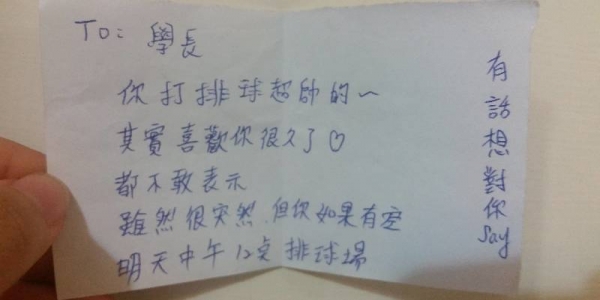 To: 學長
你打排球超帥的~
其實喜歡你很久了♡
都不敢表示
雖然很突然,但你如果有空
明天中午12点排球場
有話想對你say